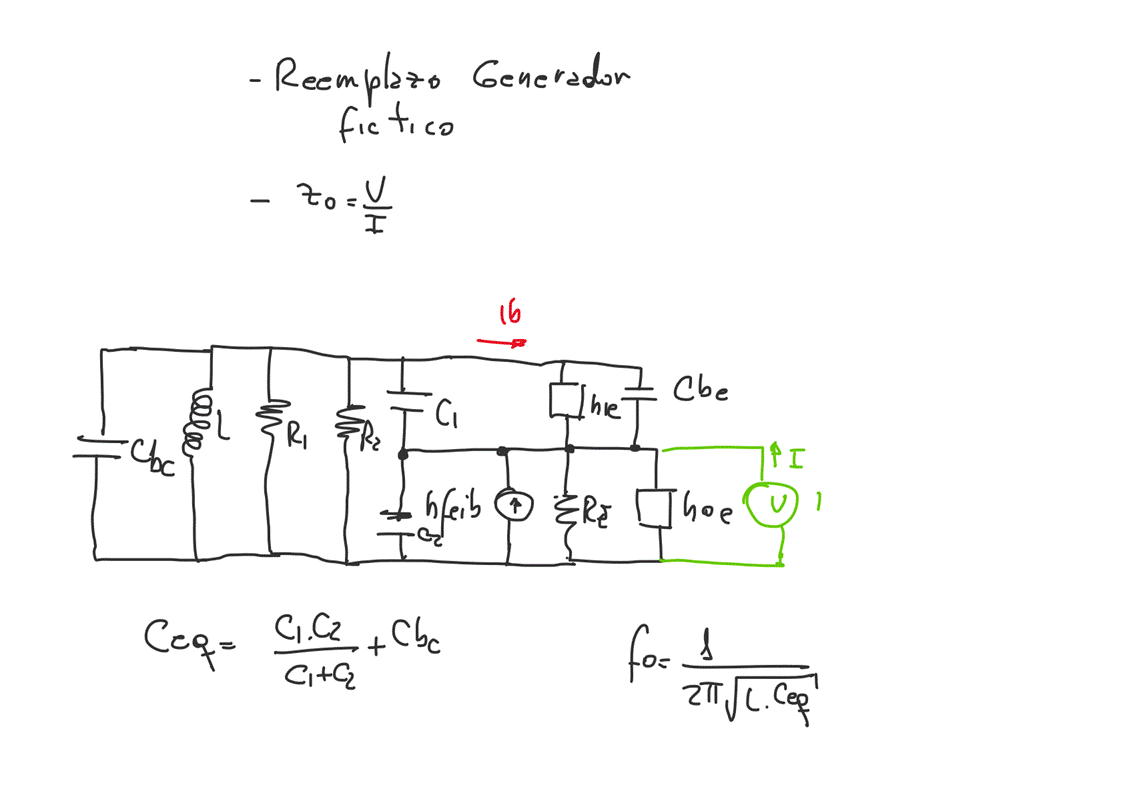 - Reemplazo Generador
fictico
- Zo = V/I
ib
Cbc
L
R1
R2
C1
hie
Cbe
C2
hfeib
RE
hoe
V
I
Ceq = C1.C2/C1+C2 + Cbc
fo = 1/2π√L.Ceq